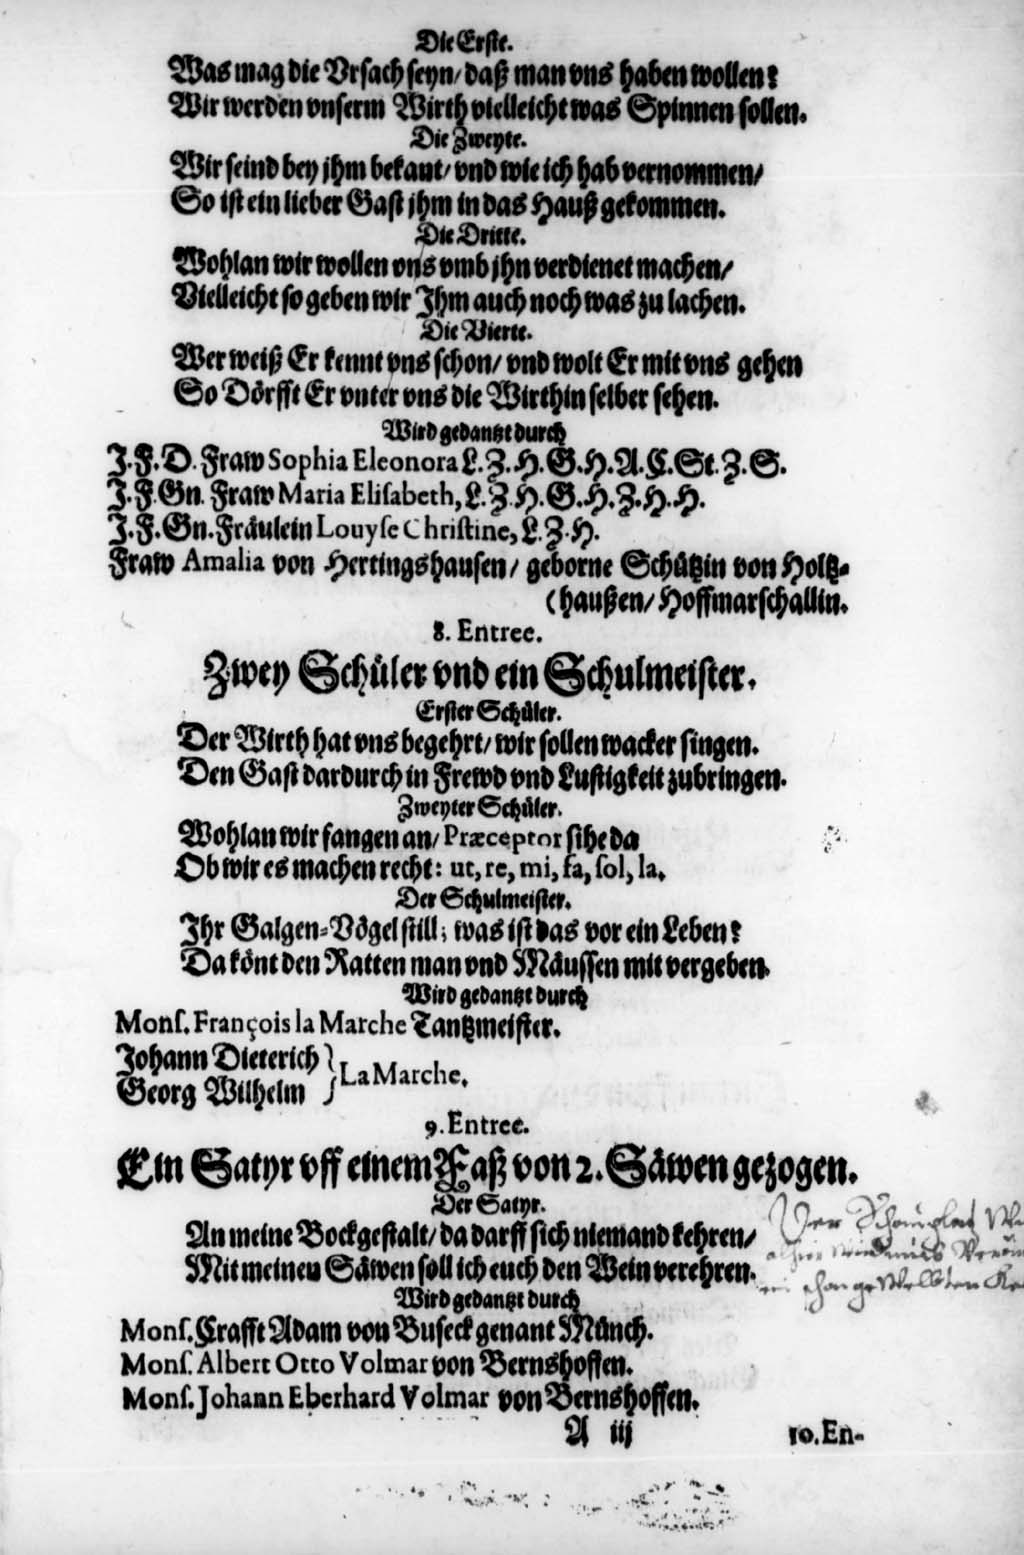 Die Erste.
Was mag die Vrsach seyn/ daß man vns haben wollen?
Wir werden vnserm Wirth vielleicht was Spinnen sollen.
Die Zweyte.
Wir seind bey jhm bekaut/ vnd wie ich hab vernommen/
So ist ein lieber Gast jhm in das Hauß gekommen.
Die Dritte.
Wohlan wir wollen vns vmb jhn verdienet machen/
Vielleicht so geben wir Jhm auch noch was zu lachen.
Die Vierte.
Wer weiß Er kennt vns schon/ vnd wolt Er mit vns gehen
So Dörfft Er vnter vns die Wirthin selber sehen.
Wird gedantzt durch
J. F. D. Fraw Sophia Eleonora L. Z. H. G. H. A. C. St. Z. S.
J. F. Gn. Fraw Maria Elisabeth, L. Z. H. G. H. Z. H. H.
J. F. Gn. Fräulein Louyse Christine, L. Z. H.
Fraw Amalia von Hertingshausen/ geborne Schützin von Holtz-
(haußen/ Hoffmarschallin.
8. Entree.
Zwey Schüler vnd ein Schulmeister.
Erster Schüler.
Der Wirth hat vns begehrt/ wir sollen wacker singen.
Den Gast dardurch in Frewd vnd Lustigkeit zubringen.
Zweyter Schüler.
Wohlan wir fangen an/ Præceptor sihe da
Ob wir es machen recht: ut, re, mi, fa, sol, la.
Der Schulmeister.
Ihr Galgen-Vögel still; was ist das vor ein Leben?
Da könt den Ratten man vnd Mäussen mit vergeben.
Wird gedantzt durch
Mons. François la Marche Tantzmeister.
Johann Dieterich
Georg Wilhelm } La Marche.
9. Entree.
Ein Satyr vff einem Faß von 2. Säwen gezogen.
Der Satyr.
An meine Bockgestalt/ da darff sich niemand kehren/
Mit meinen Säwen soll ich euch den Wein verehren.
Wird gedantzt durch
Mons. Crafft Adam von Buseck genant Münch.
Mons. Albert Otto Volmar von Bernshoffen.
Mons. Johann Eberhard Volmar von Bernshoffen.
A iij 10. En-